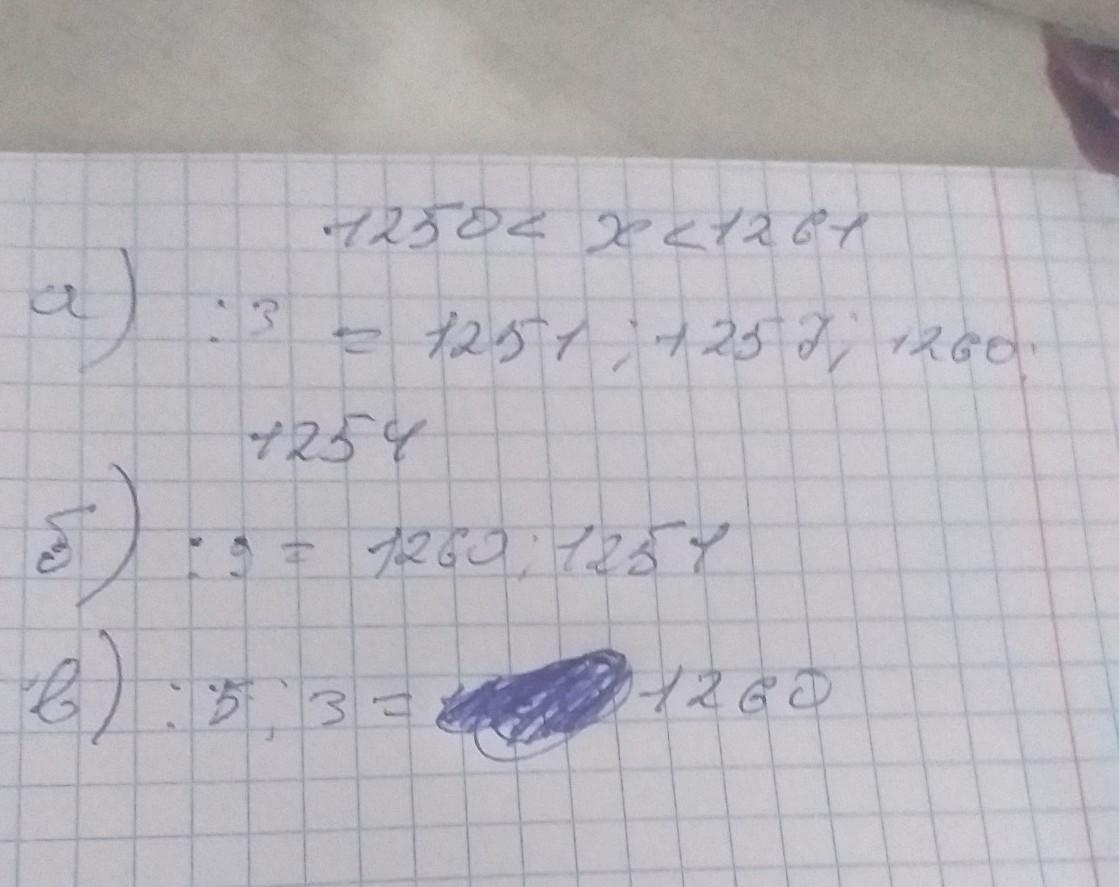 1250 < x < 1261
а) : 3 = 1251 ; 1257; 1260;
1254
б) : 9 = 1260; 1251
в) : 5; 3 = 1260